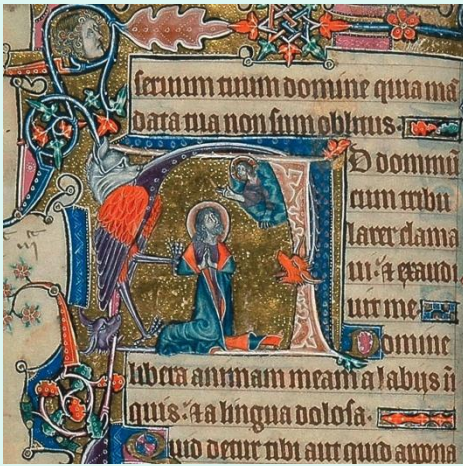 seruum tuum domine quia ma
data tua non sum oblitus.
AD dominū
cum tribu
larer clama
ui: & exaudi
uit me.
Domine
libera animam meam a labiis
quis: & a lingua dolosa.
Quid detur tibi aut quid appona